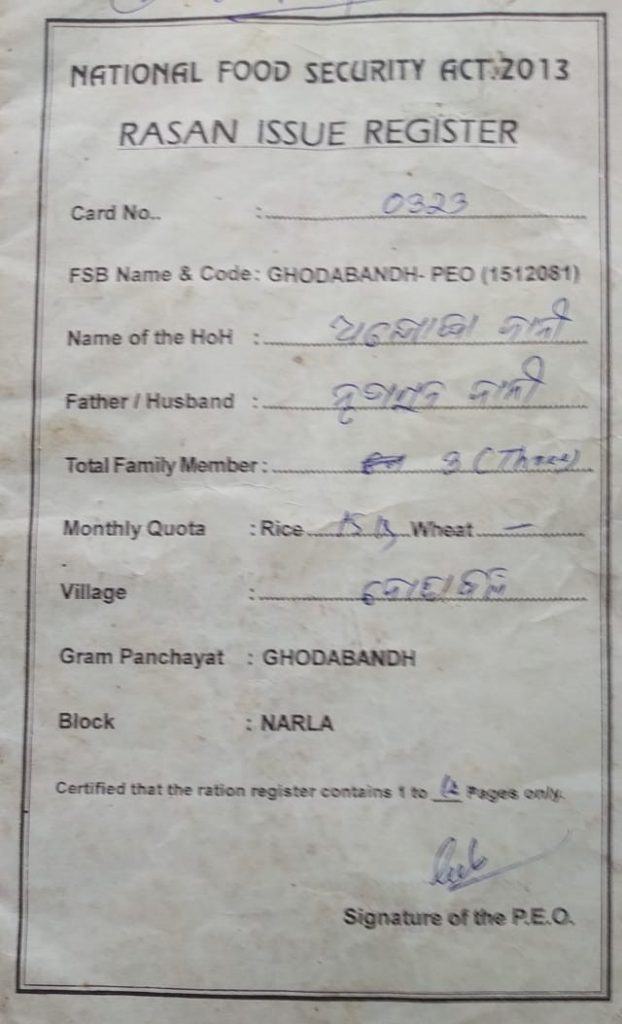 NATIONAL FOOD SECURITY ACT.2013
RASAN ISSUE REGISTER
Card No.. : 0323
FSB Name & Code : GHODABANDH- PEO (1512081)
Name of the HoH :
Father / Husband :
Total Family Member : 3 (Three)
Monthly Quota : Rice 15 Wheat —
Village :
Gram Panchayat : GHODABANDH
Block : NARLA
Certified that the ration register contains 1 to 12 Pages only.
Signature of the P.E.O.